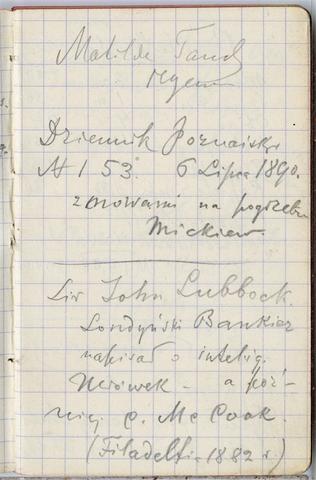 Matilde
Dziennik Poznański
№ 153. 6 Lipca 1890.
z mowami na pogrzebie
Mickiew.
Sir John Lubbock.
Londyński Bankier
napisał o intelig.
Mrówek – a póź-
niej p. Mc Cook.
(Filadelfia 1882 r.)